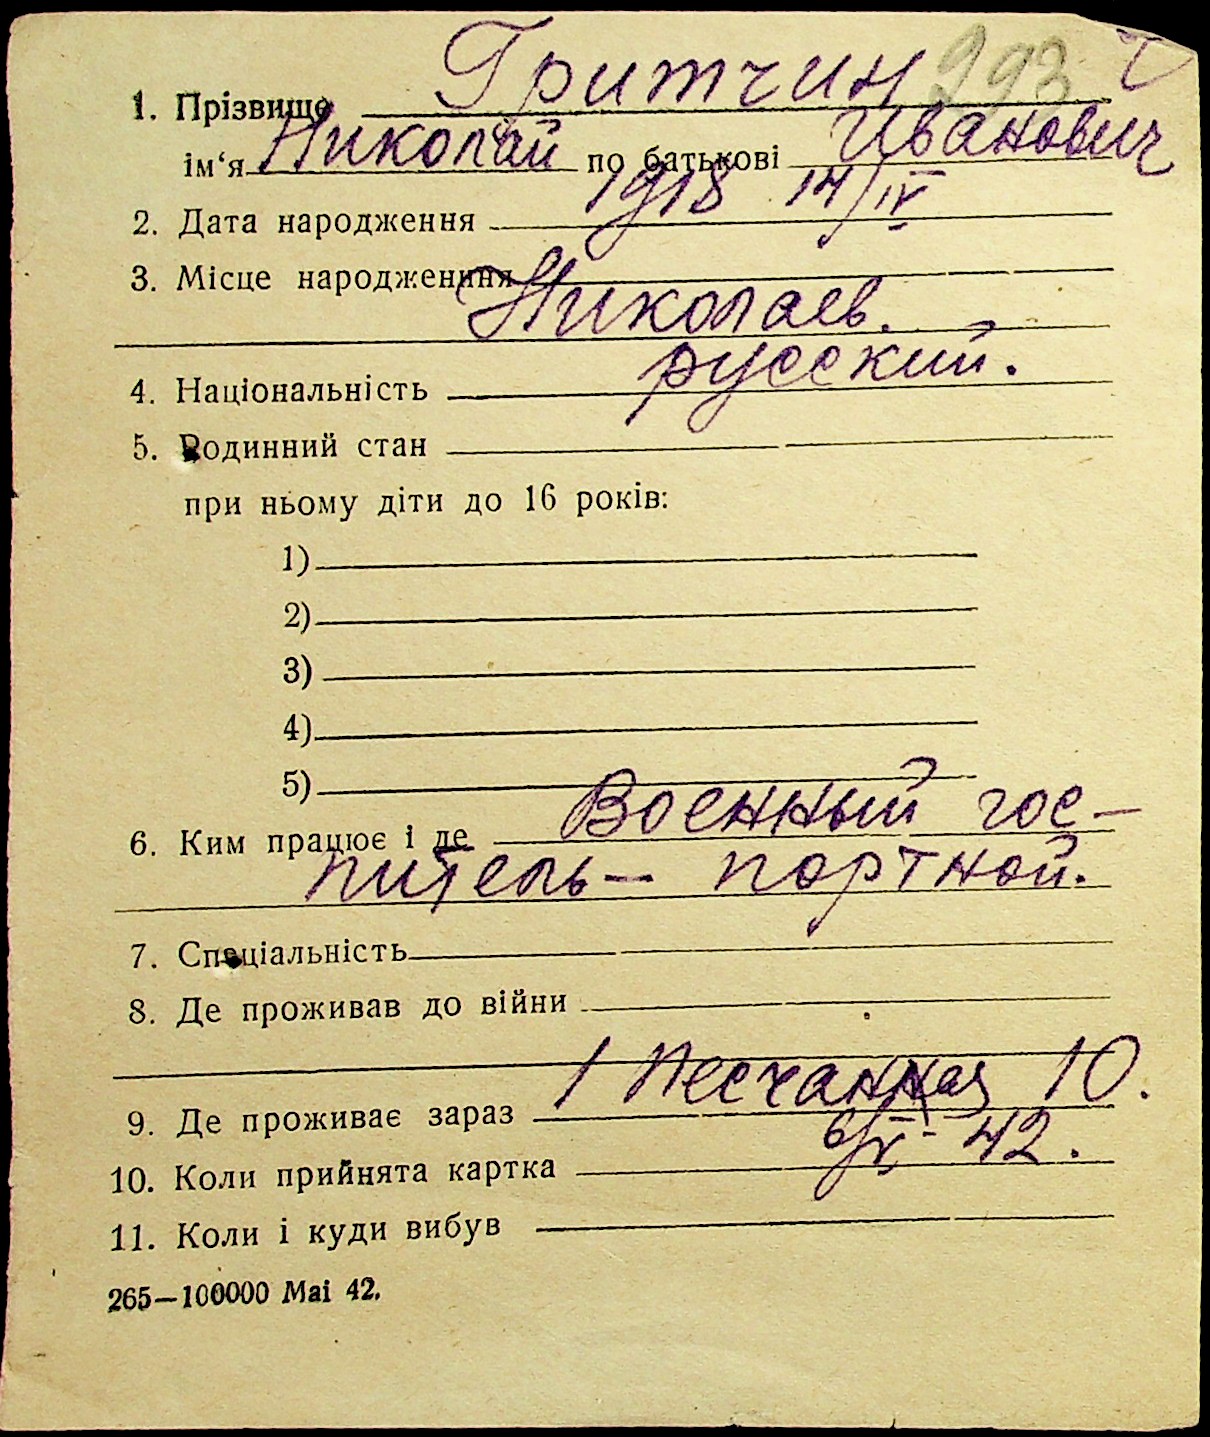 1. Прізвище Гритчин 293
ім‘я Николай по батькові Иванович
2. Дата народження 1918 14/IV
3. Місце народженння
Николаев.
4. Національність русский.
5. Родинний стан
при ньому діти до 16 років:
1)
2)
3)
4)
5)
6. Ким працює і де Военный гос-
питель - портной.
7. Спеціальність
8. Де проживав до війни
9. Де проживає зараз 1 Песчанная 10.
10. Коли прийнята картка 6/IV- 42.
11. Коли і куди вибув
265—100000 Mai 42.